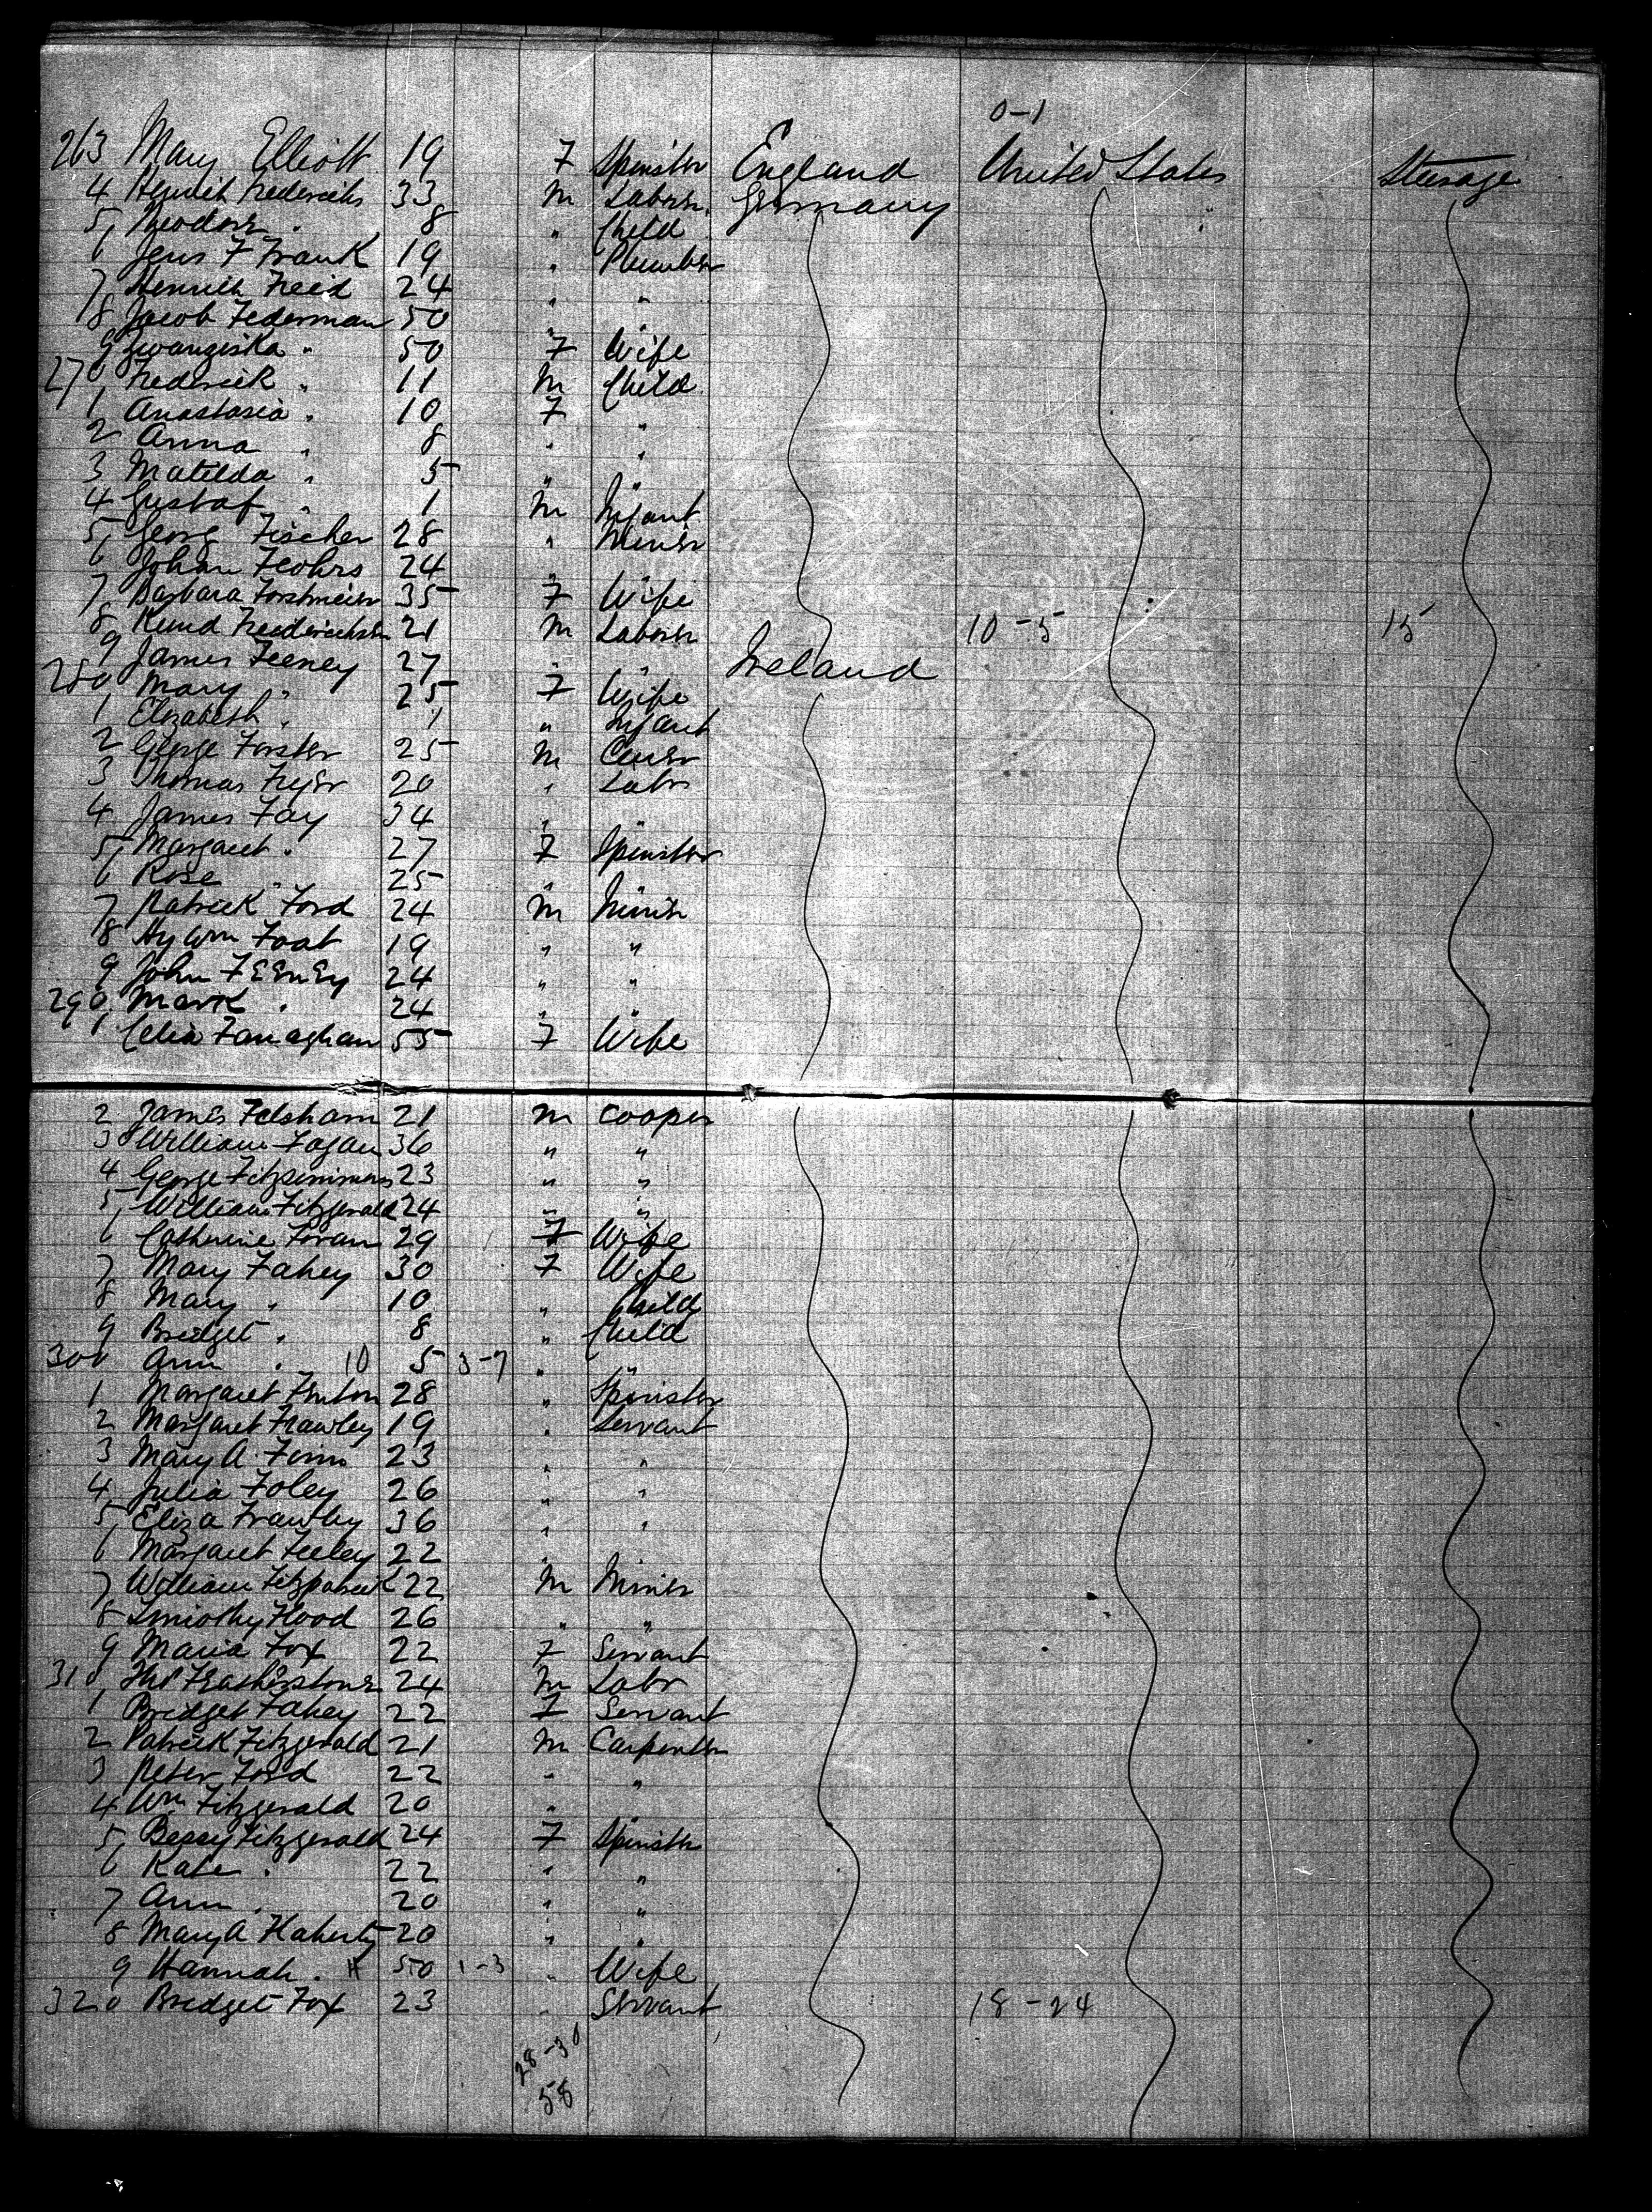 0-1
263 Mary Elliott 19 F Spinster England United States Steerage
4 Heinrich Frederichs 33 M Laborer Germany
5 Theodore " 8 " Child
6 Jens F Frank 19 " Plumber
7 Henrich Freid 24 " "
8 Jacob Federman 50 " "
9 Franziska " 50 F Wife
270 Frederick " 11 M Child
1 Anastasia " 10 F "
2 Anna " 8 " "
3 Matilda " 5 " "
4 Gustaf " 1 M Infant
5 Georg Fischer 28 " Miner
6 Johan Flohrs 24 " "
7 Barbara Forstmeier 35 F Wife
8 Knud Frederichsen 21 M Laborer 10-5 15
9 James Feeney 27 " " Ireland
280 Mary " 25 F Wife
1 Elizabeth " 1 " Infant
2 George Forster 25 M
3 Thomas Fryer 20 " Labr
4 James Fay 34 " "
5 Margaret " 27 F Spinster
6 Rose " 25 " "
7 Patrick Ford 24 M Miner
8 Hy Wm Foat 19 " "
9 John Feeney 24 " "
290 Mark " 24 " "
1 Celia Fanaghan 55 F Wife
2 James Felsham 21 M Cooper
3 William Fagan 36 " "
4 George Fitzsimmons 23 " "
5 William Fitzgerald 24 " "
6 Catherine Foran 29 F Wife
7 Mary Fahey 30 F Wife
8 Mary " 10 " Child
9 Bridget " 8 " Child
300 Ann " 10 5 3-7 " "
1 Margaret Fenton 28 " Spinster
2 Margaret Frawley 19 " Servant
3 Mary A. Finn 23 " "
4 Julia Foley 26 " "
5 Eliza Frawley 36 " "
6 Margaret Feeley 22 "
7 William Fitzpatrick 22 M Miner
8 Timothy Flood 26 " "
9 Maria Fox 22 F Servant
310 Thos Featherstone 24 M Labr
1 Bridget Fahey 22 F Servant
2 Patrick Fitzgerald 21 M Carpenter
3 Peter Ford 22 " "
4 Wm Fitzgerald 20 "
5 Bessy Fitzgerald 24 F Spinster
6 Kate " 22 " "
7 Ann " 20 " "
8 Mary A Flaherty 20 " "
9 Hannah " 50 1-3 " Wife
320 Bridget Fox 23 " Servant 18-24
28-30
58